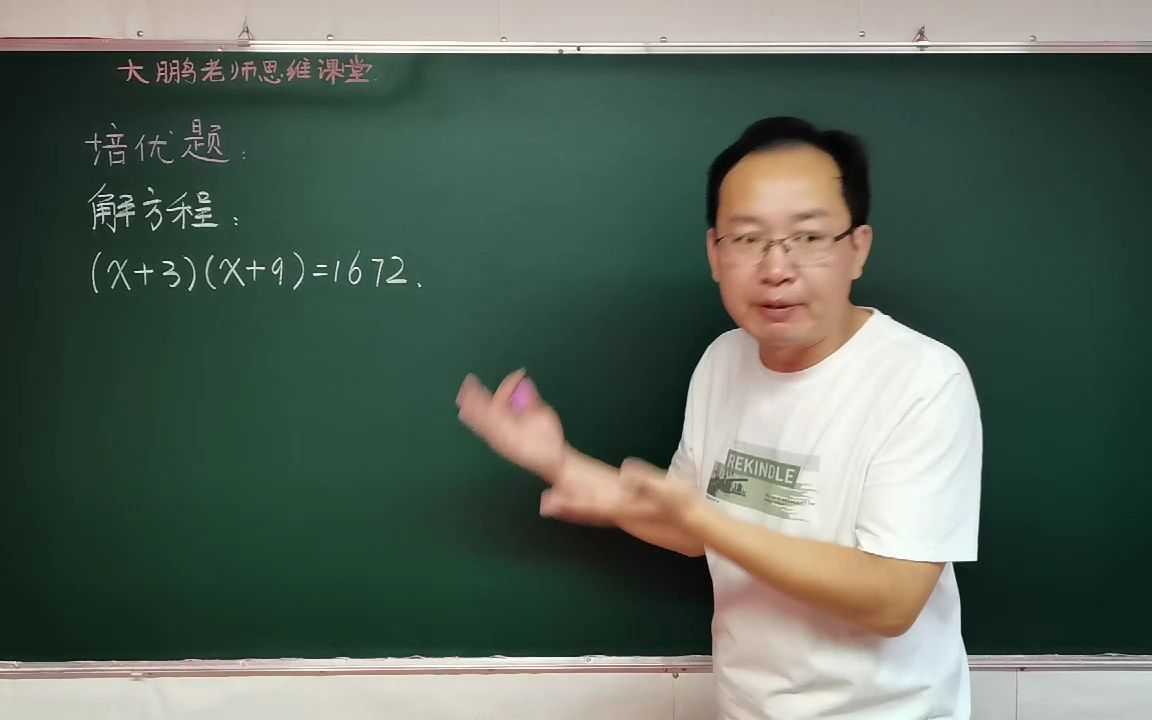 大鹏老师思维课堂.
培优题:
解方程:
(x+3)(x+9)=1672.
REKINDLE